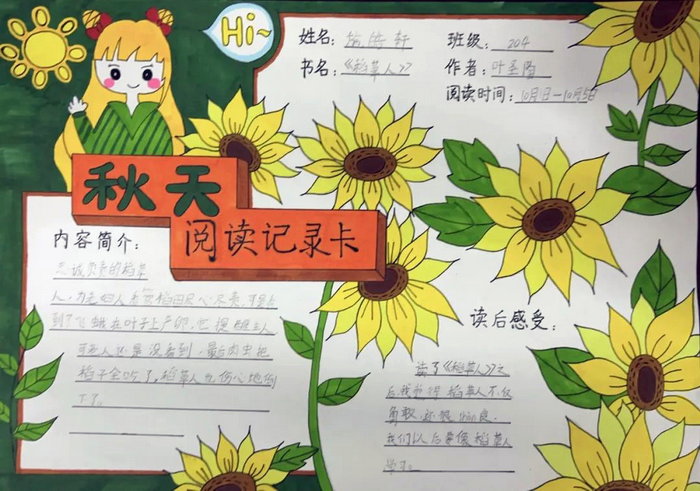 Hi~
姓名：
班级：204
书名：《稻草人》
作者：叶圣陶
阅读时间：10月1日—10月5日
秋天
阅读记录卡
内容简介：
忠诚负责的稻草
人，为主人看管稻田尽心尽责，可是看
到了飞蛾在叶子上产卵，它提醒主人
可主人还是没看到，最后肉虫把
稻子全吃了，稻草人也伤心地倒
下了。
读后感受：
读了《稻草人》之
后我觉得稻草人不仅
勇敢，还很善良，
我们以后要像稻草人
学习。